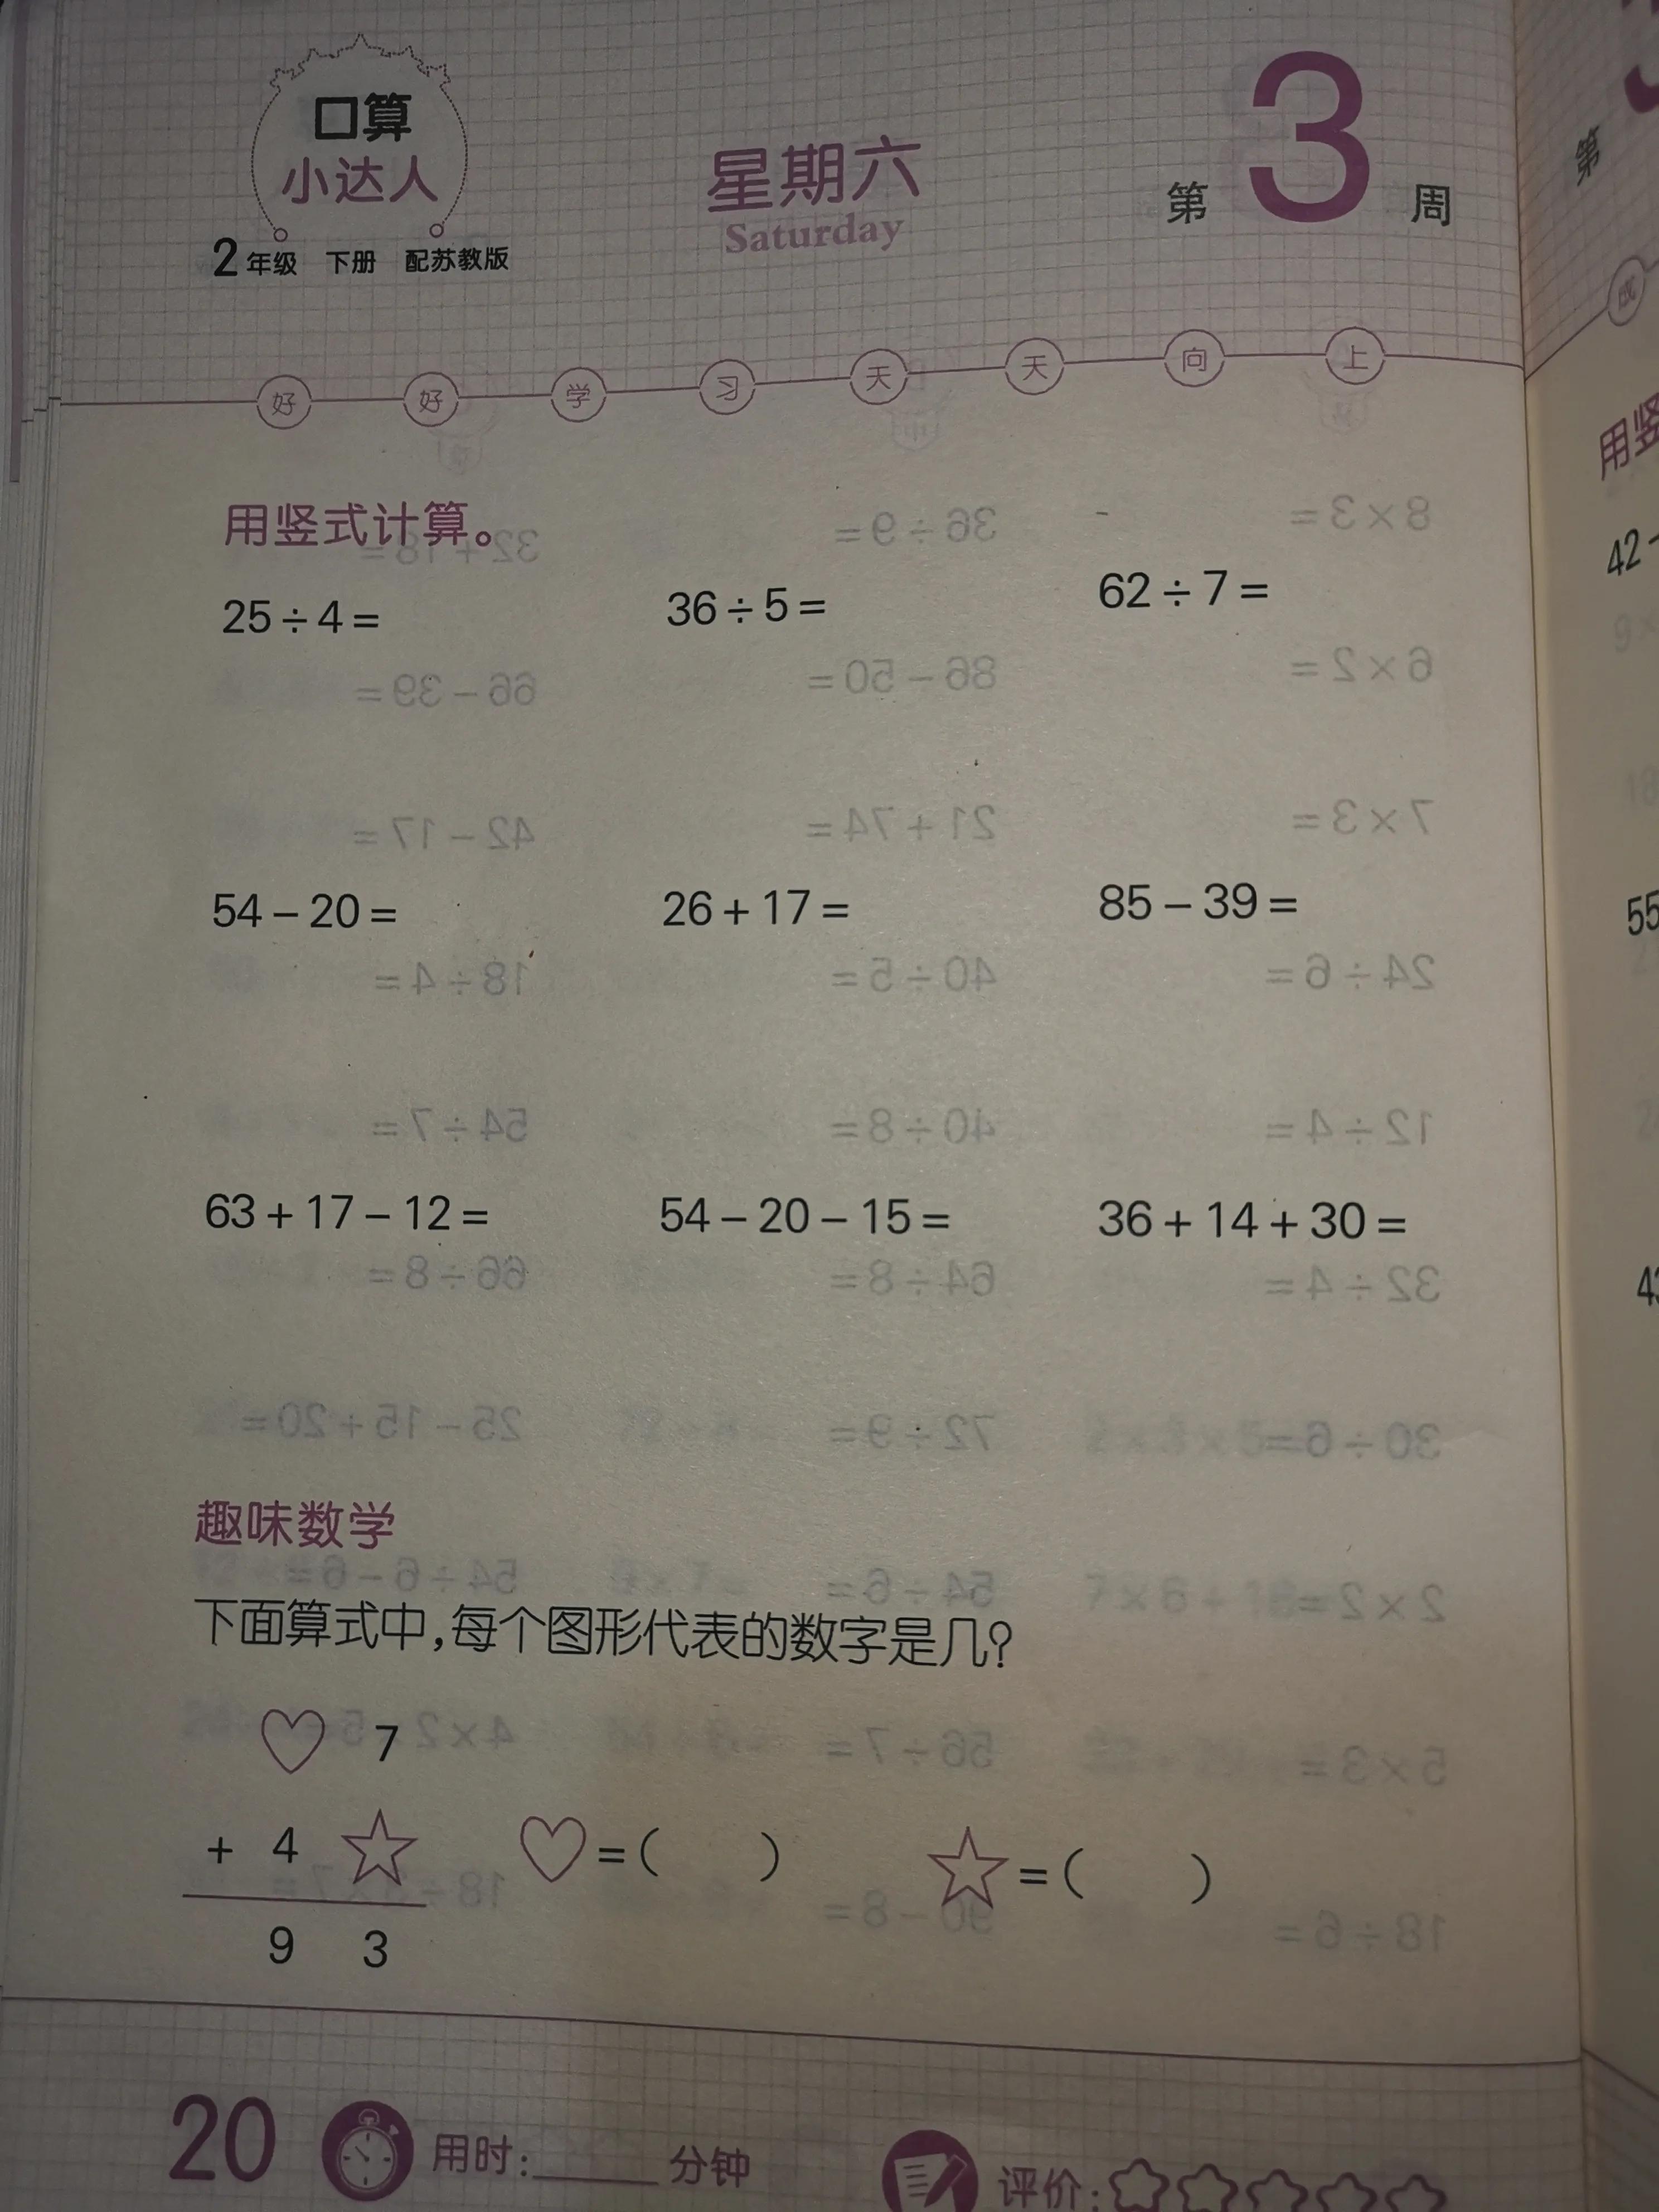 口算
小达人
2年级 下册 配苏教版
星期六
Saturday
第3周
好好学习天天向上
用竖式计算。
25÷4= 36÷5= 62÷7=
54－20= 26+17= 85－39=
63+17－12= 54－20－15= 36+14+30=
趣味数学
下面算式中,每个图形代表的数字是几?
♡ 7
+ 4 ☆ ♡=( ) ☆=( )
9 3
20 用时:____分钟 评价:☆☆☆☆☆
第
成
用竖
42－
55
43